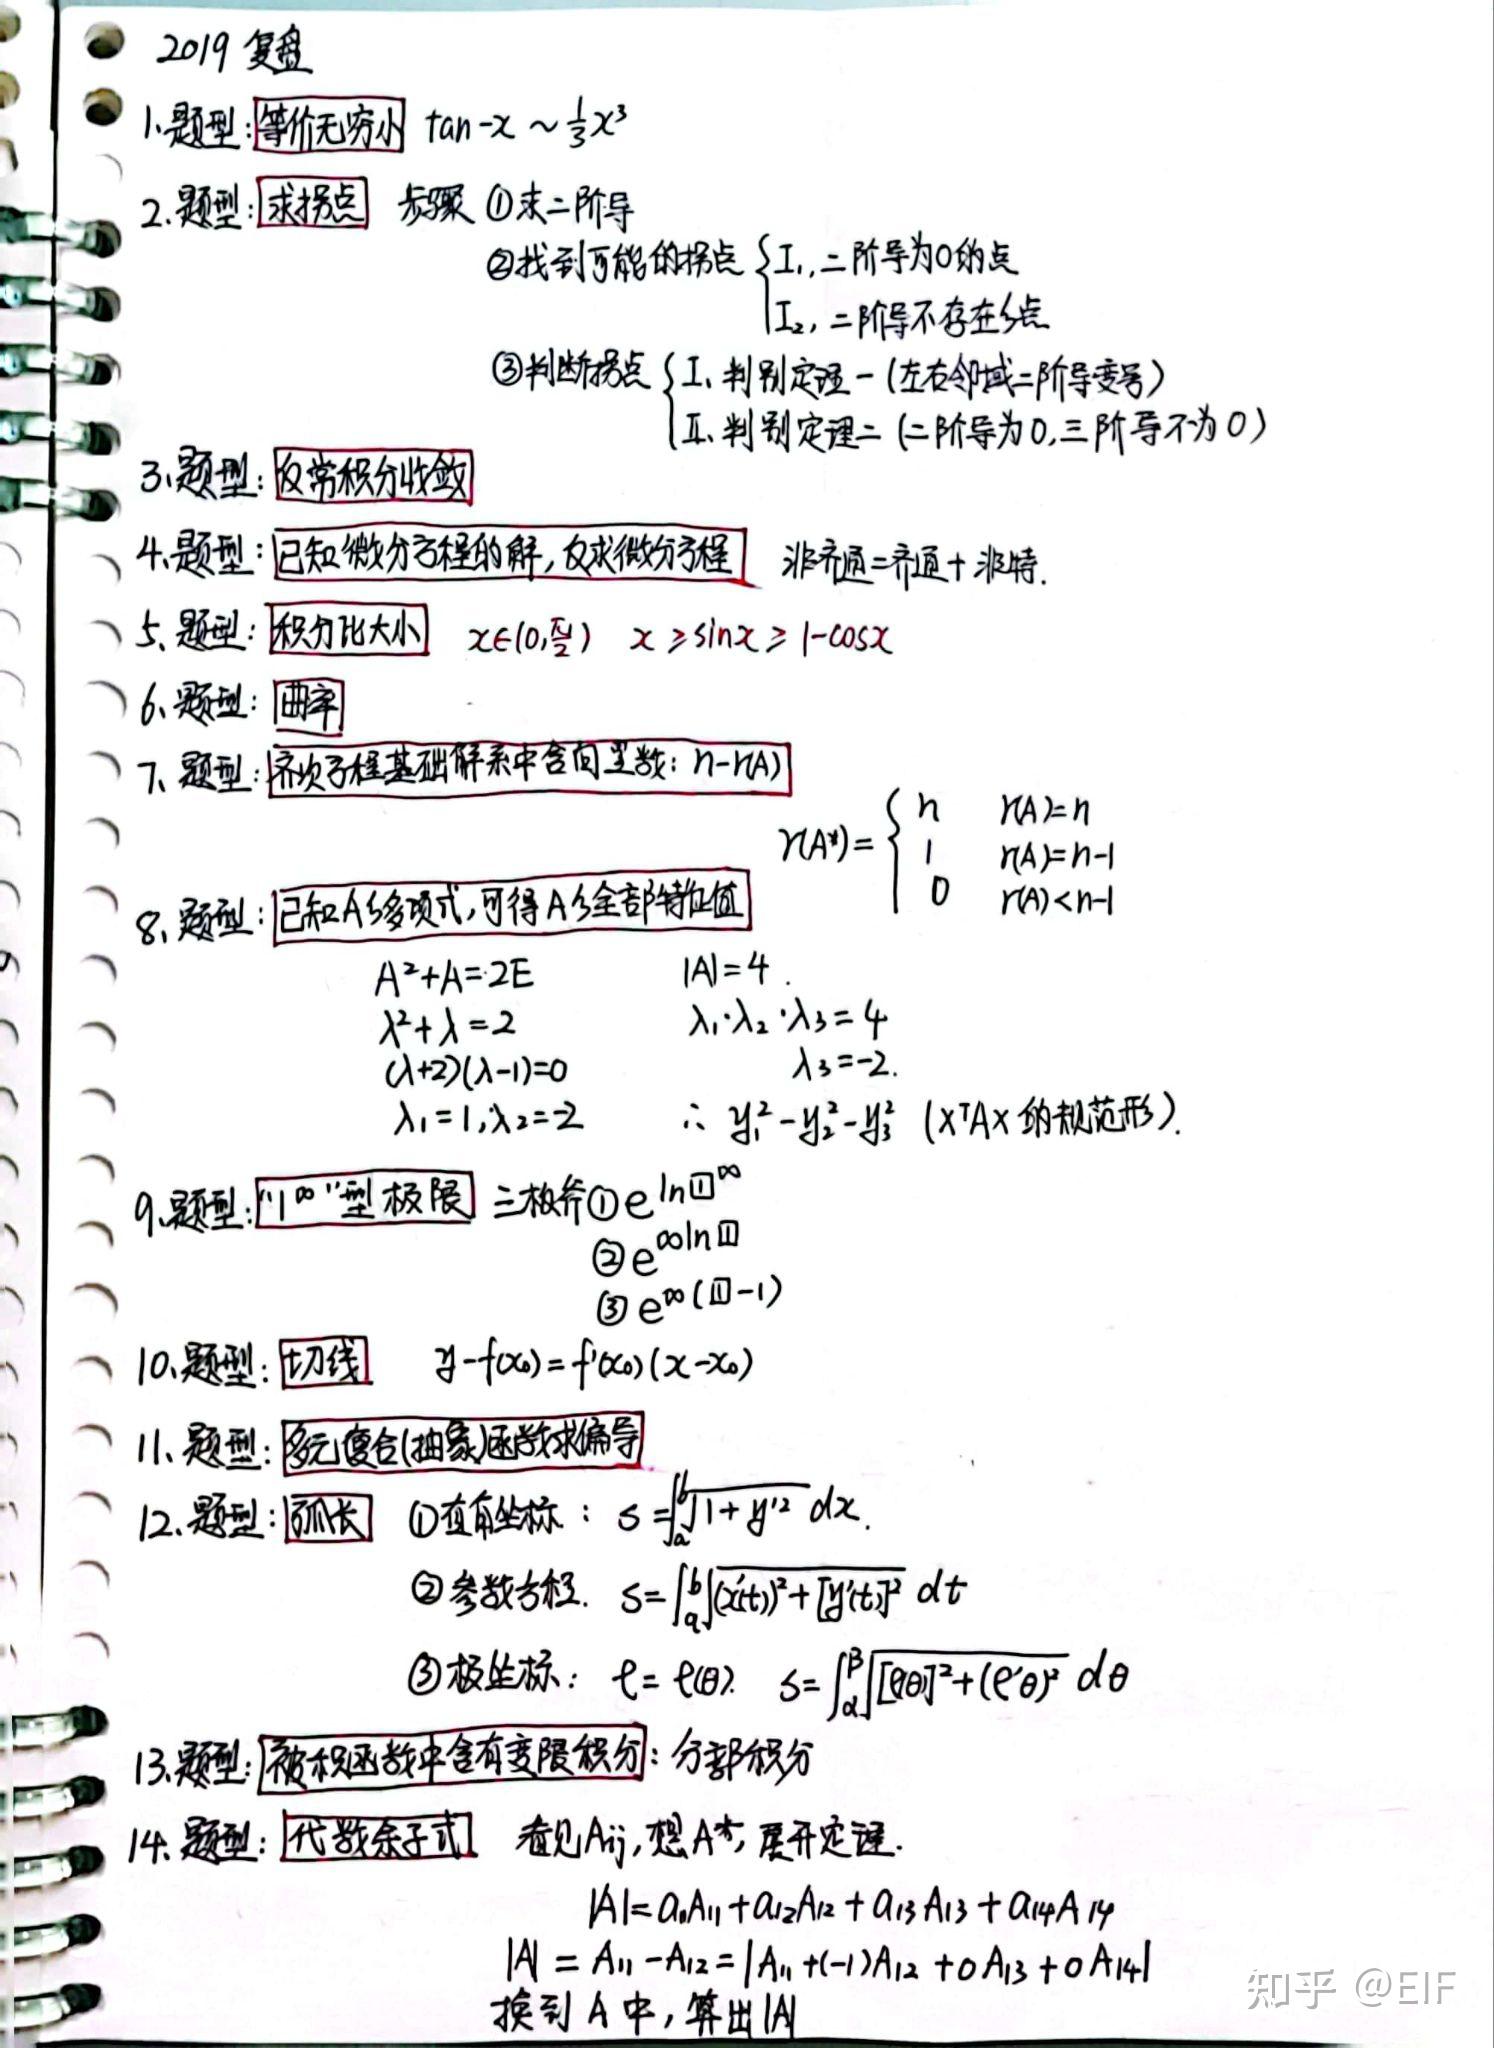 2019 复盘
1.题型:等价无穷小 tan-x ~ 1/3 x³
2.题型:求拐点 步骤 ①求二阶导
②找到可能的拐点 { I₁,二阶导为0的点
I₂,二阶导不存在的点
③判断拐点 { I、判别定理一(左右邻域二阶导变号)
II、判别定理二(二阶导为0,三阶导不为0)
3.题型:反常积分收敛
4.题型:已知微分方程的解,反求微分方程 非齐通=齐通+非特.
5.题型:积分比大小 x∈(0,π/2) x≥sinx≥1-cosx
6.题型:曲率
7.题型:齐次方程基础解系中含向量数:n-r(A)
r(A*)= { n r(A)=n
1 r(A)=n-1
0 r(A)<n-1
8.题型:已知A的多项式,可得A的全部特征值
A²+A=2E |A|=4.
λ²+λ=2 λ₁·λ₂·λ₃=4
(λ+2)(λ-1)=0 λ₃=-2.
λ₁=1,λ₂=-2 ∴ y₁²-y₂²-y₃² (xᵀAx的规范形).
9.题型:"1^∞"型极限 三板斧①e^ln□^∞
②e^∞ln□
③e^∞(□-1)
10.题型:切线 y-f(x₀)=f'(x₀)(x-x₀)
11.题型:多元复合(抽象)函数求偏导
12.题型:弧长 ①直角坐标: s=∫ₐᵇ√(1+y'²) dx.
②参数方程. s=∫ₐᵇ√((x'(t))²+[y'(t)]²) dt
③极坐标: ρ=ρ(θ). s=∫_α^β√([ρ(θ)]²+(ρ'θ)²) dθ
13.题型:被积函数中含有变限积分:分部积分
14.题型:代数余子式 看见Aij,想A*,展开定理.
|A|=a₁₁A₁₁+a₁₂A₁₂+a₁₃A₁₃+a₁₄A₁₄
|A|=A₁₁-A₁₂=|A₁₁+(-1)A₁₂+0A₁₃+0A₁₄|
换到A中,算出|A|
知乎 @EIF